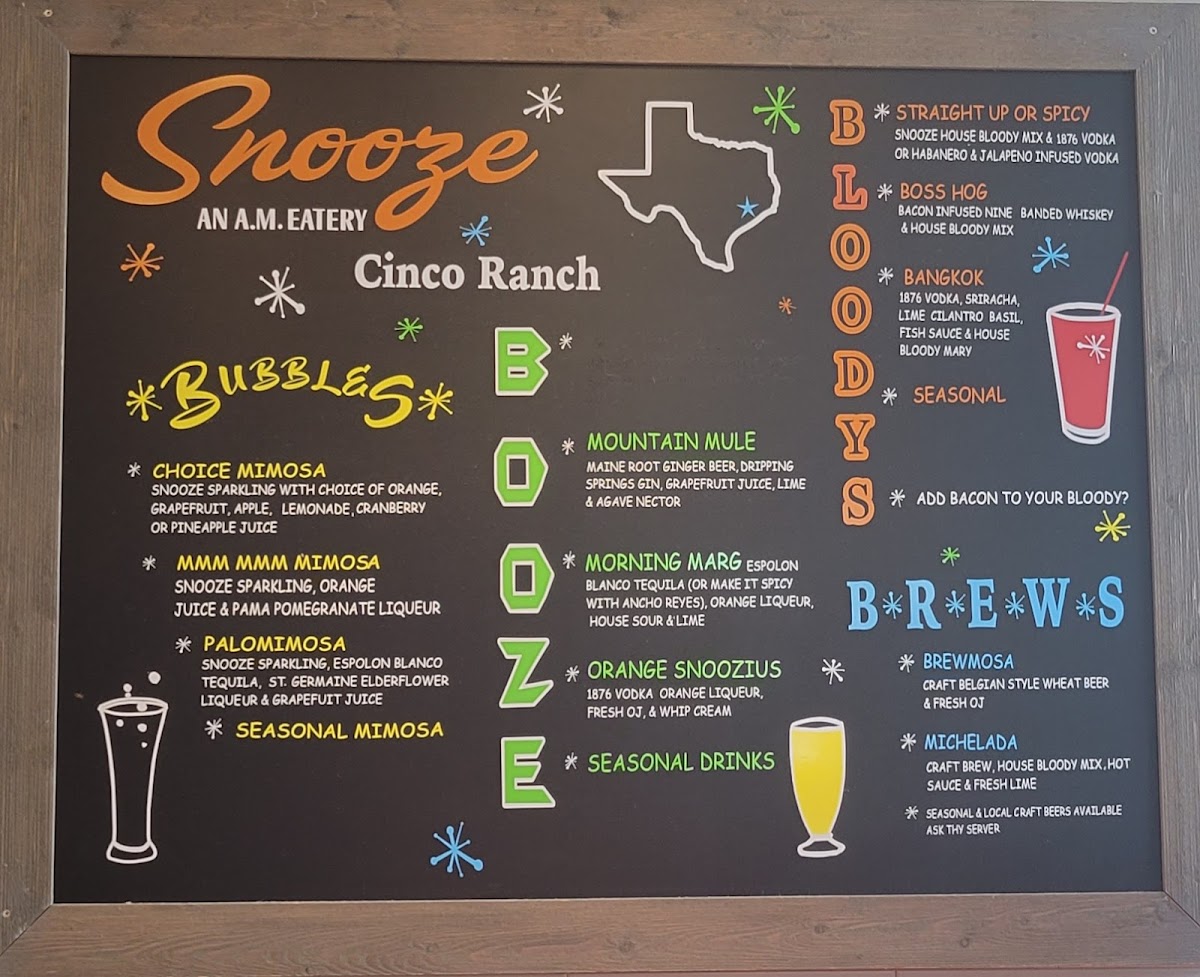 Snooze
AN A.M. EATERY
Cinco Ranch
BUBBLES
CHOICE MIMOSA
SNOOZE SPARKLING WITH CHOICE OF ORANGE,
GRAPEFRUIT, APPLE, LEMONADE, CRANBERRY
OR PINEAPPLE JUICE
MMM MMM MIMOSA
SNOOZE SPARKLING, ORANGE
JUICE & PAMA POMEGRANATE LIQUEUR
PALOMIMOSA
SNOOZE SPARKLING, ESPOLON BLANCO
TEQUILA, ST. GERMAINE ELDERFLOWER
LIQUEUR & GRAPEFUIT JUICE
SEASONAL MIMOSA
BOOZE
MOUNTAIN MULE
MAINE ROOT GINGER BEER, DRIPPING
SPRINGS GIN, GRAPEFRUIT JUICE, LIME
& AGAVE NECTOR
MORNING MARG ESPOLON
BLANCO TEQUILA (OR MAKE IT SPICY
WITH ANCHO REYES), ORANGE LIQUEUR,
HOUSE SOUR & LIME
ORANGE SNOOZIUS
1876 VODKA ORANGE LIQUEUR,
FRESH OJ, & WHIP CREAM
SEASONAL DRINKS
BLOODYS
STRAIGHT UP OR SPICY
SNOOZE HOUSE BLOODY MIX & 1876 VODKA
OR HABANERO & JALAPENO INFUSED VODKA
BOSS HOG
BACON INFUSED NINE BANDED WHISKEY
& HOUSE BLOODY MIX
BANGKOK
1876 VODKA, SRIRACHA,
LIME CILANTRO BASIL,
FISH SAUCE & HOUSE
BLOODY MARY
SEASONAL
ADD BACON TO YOUR BLOODY?
B*R*E*W*S
BREWMOSA
CRAFT BELGIAN STYLE WHEAT BEER
& FRESH OJ
MICHELADA
CRAFT BREW, HOUSE BLOODY MIX, HOT
SAUCE & FRESH LIME
SEASONAL & LOCAL CRAFT BEERS AVAILABLE
ASK THY SERVER